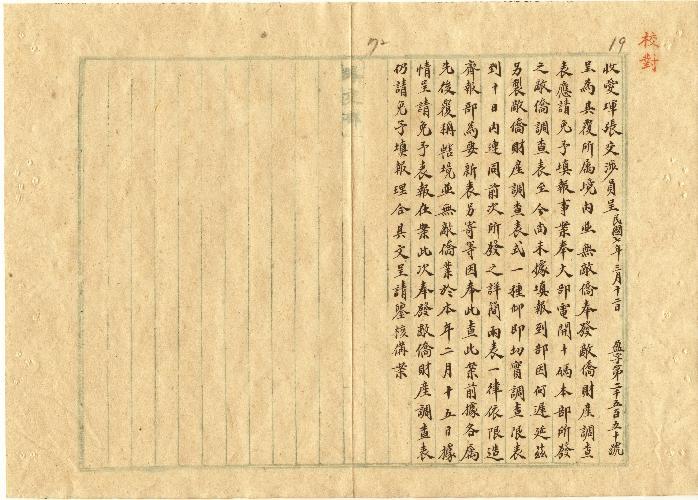 校對
19
72
收愛琿張交涉員呈 民國七年三月十二日 盈字第二千五百五十號
呈為具覆所屬境內並無敵僑奉發敵僑財產調查
表應請免予填報事業奉大部電開十碼本部所發
之敵僑調查表至今尚未據填報到部因何遲延茲
另製敵僑財產調查表式一種仰即切實調查限表
到十日內連同前次所發之詳簡兩表一律依限造
齊報部為要新表另寄等因奉此查此案前據各屬
先後覆稱轄境並無敵僑業於本年二月十五日據
情呈請免予表報在案此次奉發敵僑財產調查表
仍請免予填報理合具文呈請鑒核備案